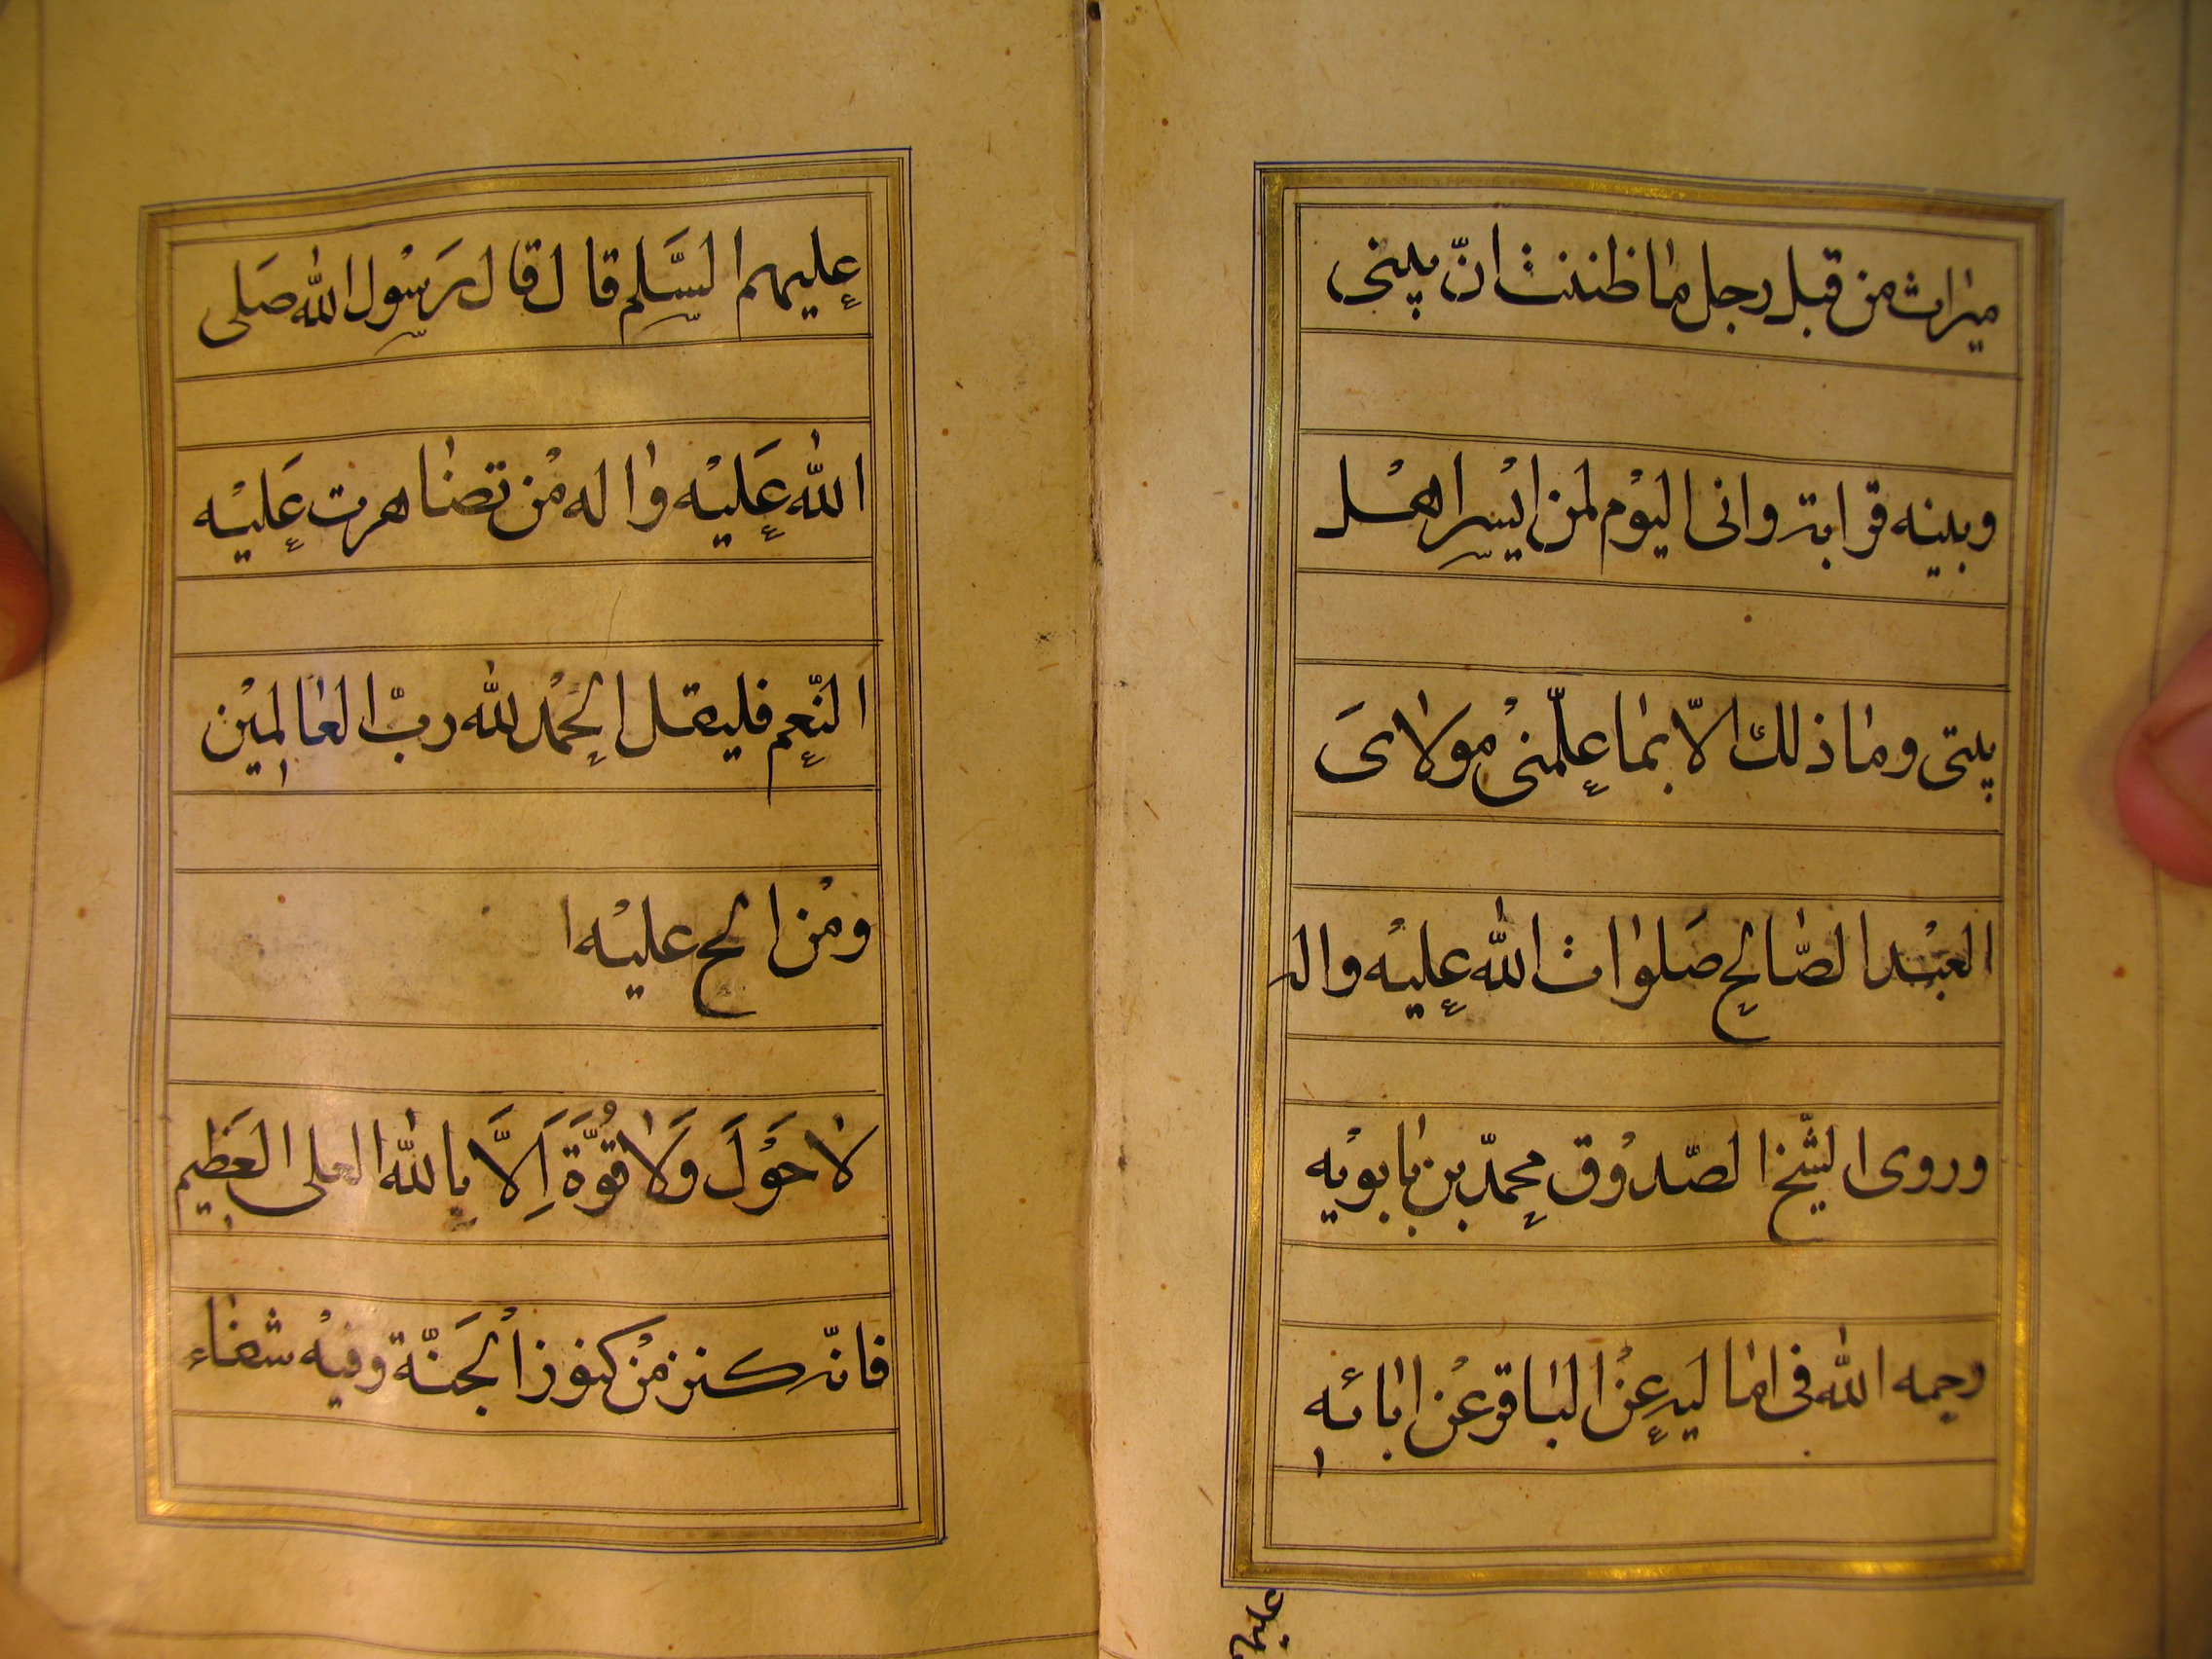 ميراث من قبل رجل ما ظننت انّ بينى
وبينه قرابة وانى اليوم لمن ايسر اهل
بيتى وما ذلك الّا بما علّمنى مولاى
العبد الصّالح صلوات الله عليه واله
وروى الشّيخ الصّدوق محمّد بن بابويه
رحمه الله فى اماليه عن الباقر عن ابائه
عليهم
عليهم السَّلم قال قال رَسُول الله صَلى
الله عَليْه واله مْن تضاهرت عَليْه
النّعم فليقل الحَمْد لله ربّ العالمِيْن
ومْن الح عليْه ا
لا حَوْلَ وَلا قُوَّةَ اَلِاَّ بِالله العلى العَظِيم
فانّه كنز مْن كنوز الجَنّة وفيْه شفاء